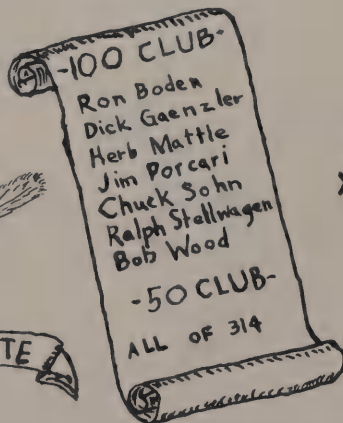 -100 CLUB-
Ron Boden
Dick Gaenzler
Herb Mattle
Jim Porcari
Chuck Sohn
Ralph Stellwagen
Bob Wood
-50 CLUB-
ALL OF 314
TE